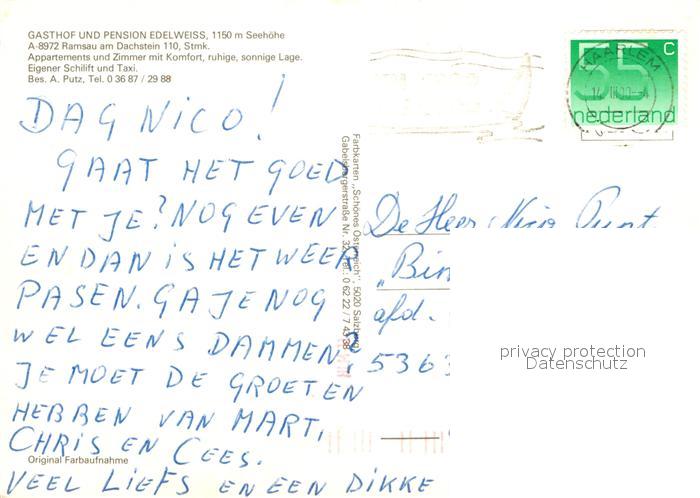 GASTHOF UND PENSION EDELWEISS, 1150 m Seehöhe
A-8972 Ramsau am Dachstein 110, Stmk.
Appartements und Zimmer mit Komfort, ruhige, sonnige Lage.
Eigener Schilift und Taxi.
Bes. A. Putz, Tel. 0 36 87 / 29 88
55 C
nederland
HAARLEM
DAG NICO!
GAAT HET GOED
MET JE? NOG EVEN
EN DAN IS HET WEER
PASEN. GA JE NOG
WEL EENS DAMMEN?
JE MOET DE GROETEN
HEBBEN VAN MART,
CHRIS EN CEES.
VEEL LIEFS EN EEN DIKKE
Original Farbaufnahme
Farbkarten „Schönes Österreich", 5020 Salzburg
Gabelsbergerstraße Nr. 32, Tel.: 0 62 22 / 7 43 38
De Heer Nico
„Bin
afd.
5363
privacy protection
Datenschutz